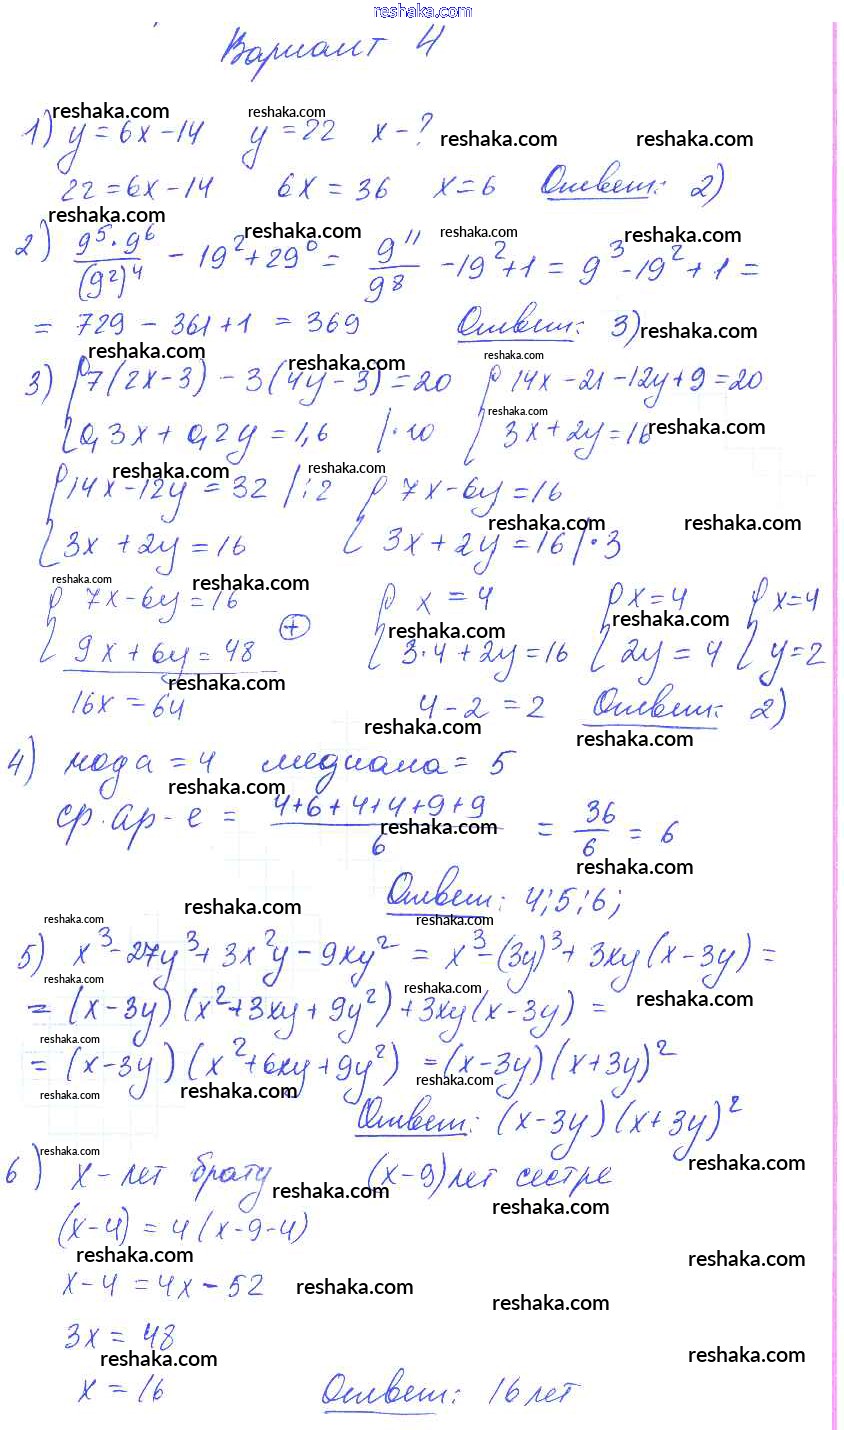 reshaka.com
Вариант 4
1) y = 6x - 14   y = 22   x - ?
22 = 6x - 14   6x = 36   x = 6   Ответ: 2)
2) (9⁵ · 9⁶)/(9²)⁴ - 19² + 29⁰ = 9¹¹/9⁸ - 19² + 1 = 9³ - 19² + 1 =
= 729 - 361 + 1 = 369   Ответ: 3)
3) { 7(2x - 3) - 3(4y - 3) = 20   { 14x - 21 - 12y + 9 = 20
0,3x + 0,2y = 1,6   | · 10   3x + 2y = 16
{ 14x - 12y = 32 | : 2   { 7x - 6y = 16
3x + 2y = 16   3x + 2y = 16 | · 3
{ 7x - 6y = 16   { x = 4   { x = 4   { x = 4
9x + 6y = 48   ⊕   3 · 4 + 2y = 16   2y = 4   y = 2
16x = 64   4 - 2 = 2   Ответ: 2)
4) мода = 4   медиана = 5
ср. ар-е = (4+6+4+4+9+9)/6 = 36/6 = 6
Ответ: 4; 5; 6;
5) x³ - 27y³ + 3x²y - 9xy² = x³ - (3y)³ + 3xy(x - 3y) =
= (x - 3y)(x² + 3xy + 9y²) + 3xy(x - 3y) =
= (x - 3y)(x² + 6xy + 9y²) = (x - 3y)(x + 3y)²
Ответ: (x - 3y)(x + 3y)²
6) x - лет брату   (x - 9) лет сестре
(x - 4) = 4(x - 9 - 4)
x - 4 = 4x - 52
3x = 48
x = 16   Ответ: 16 лет